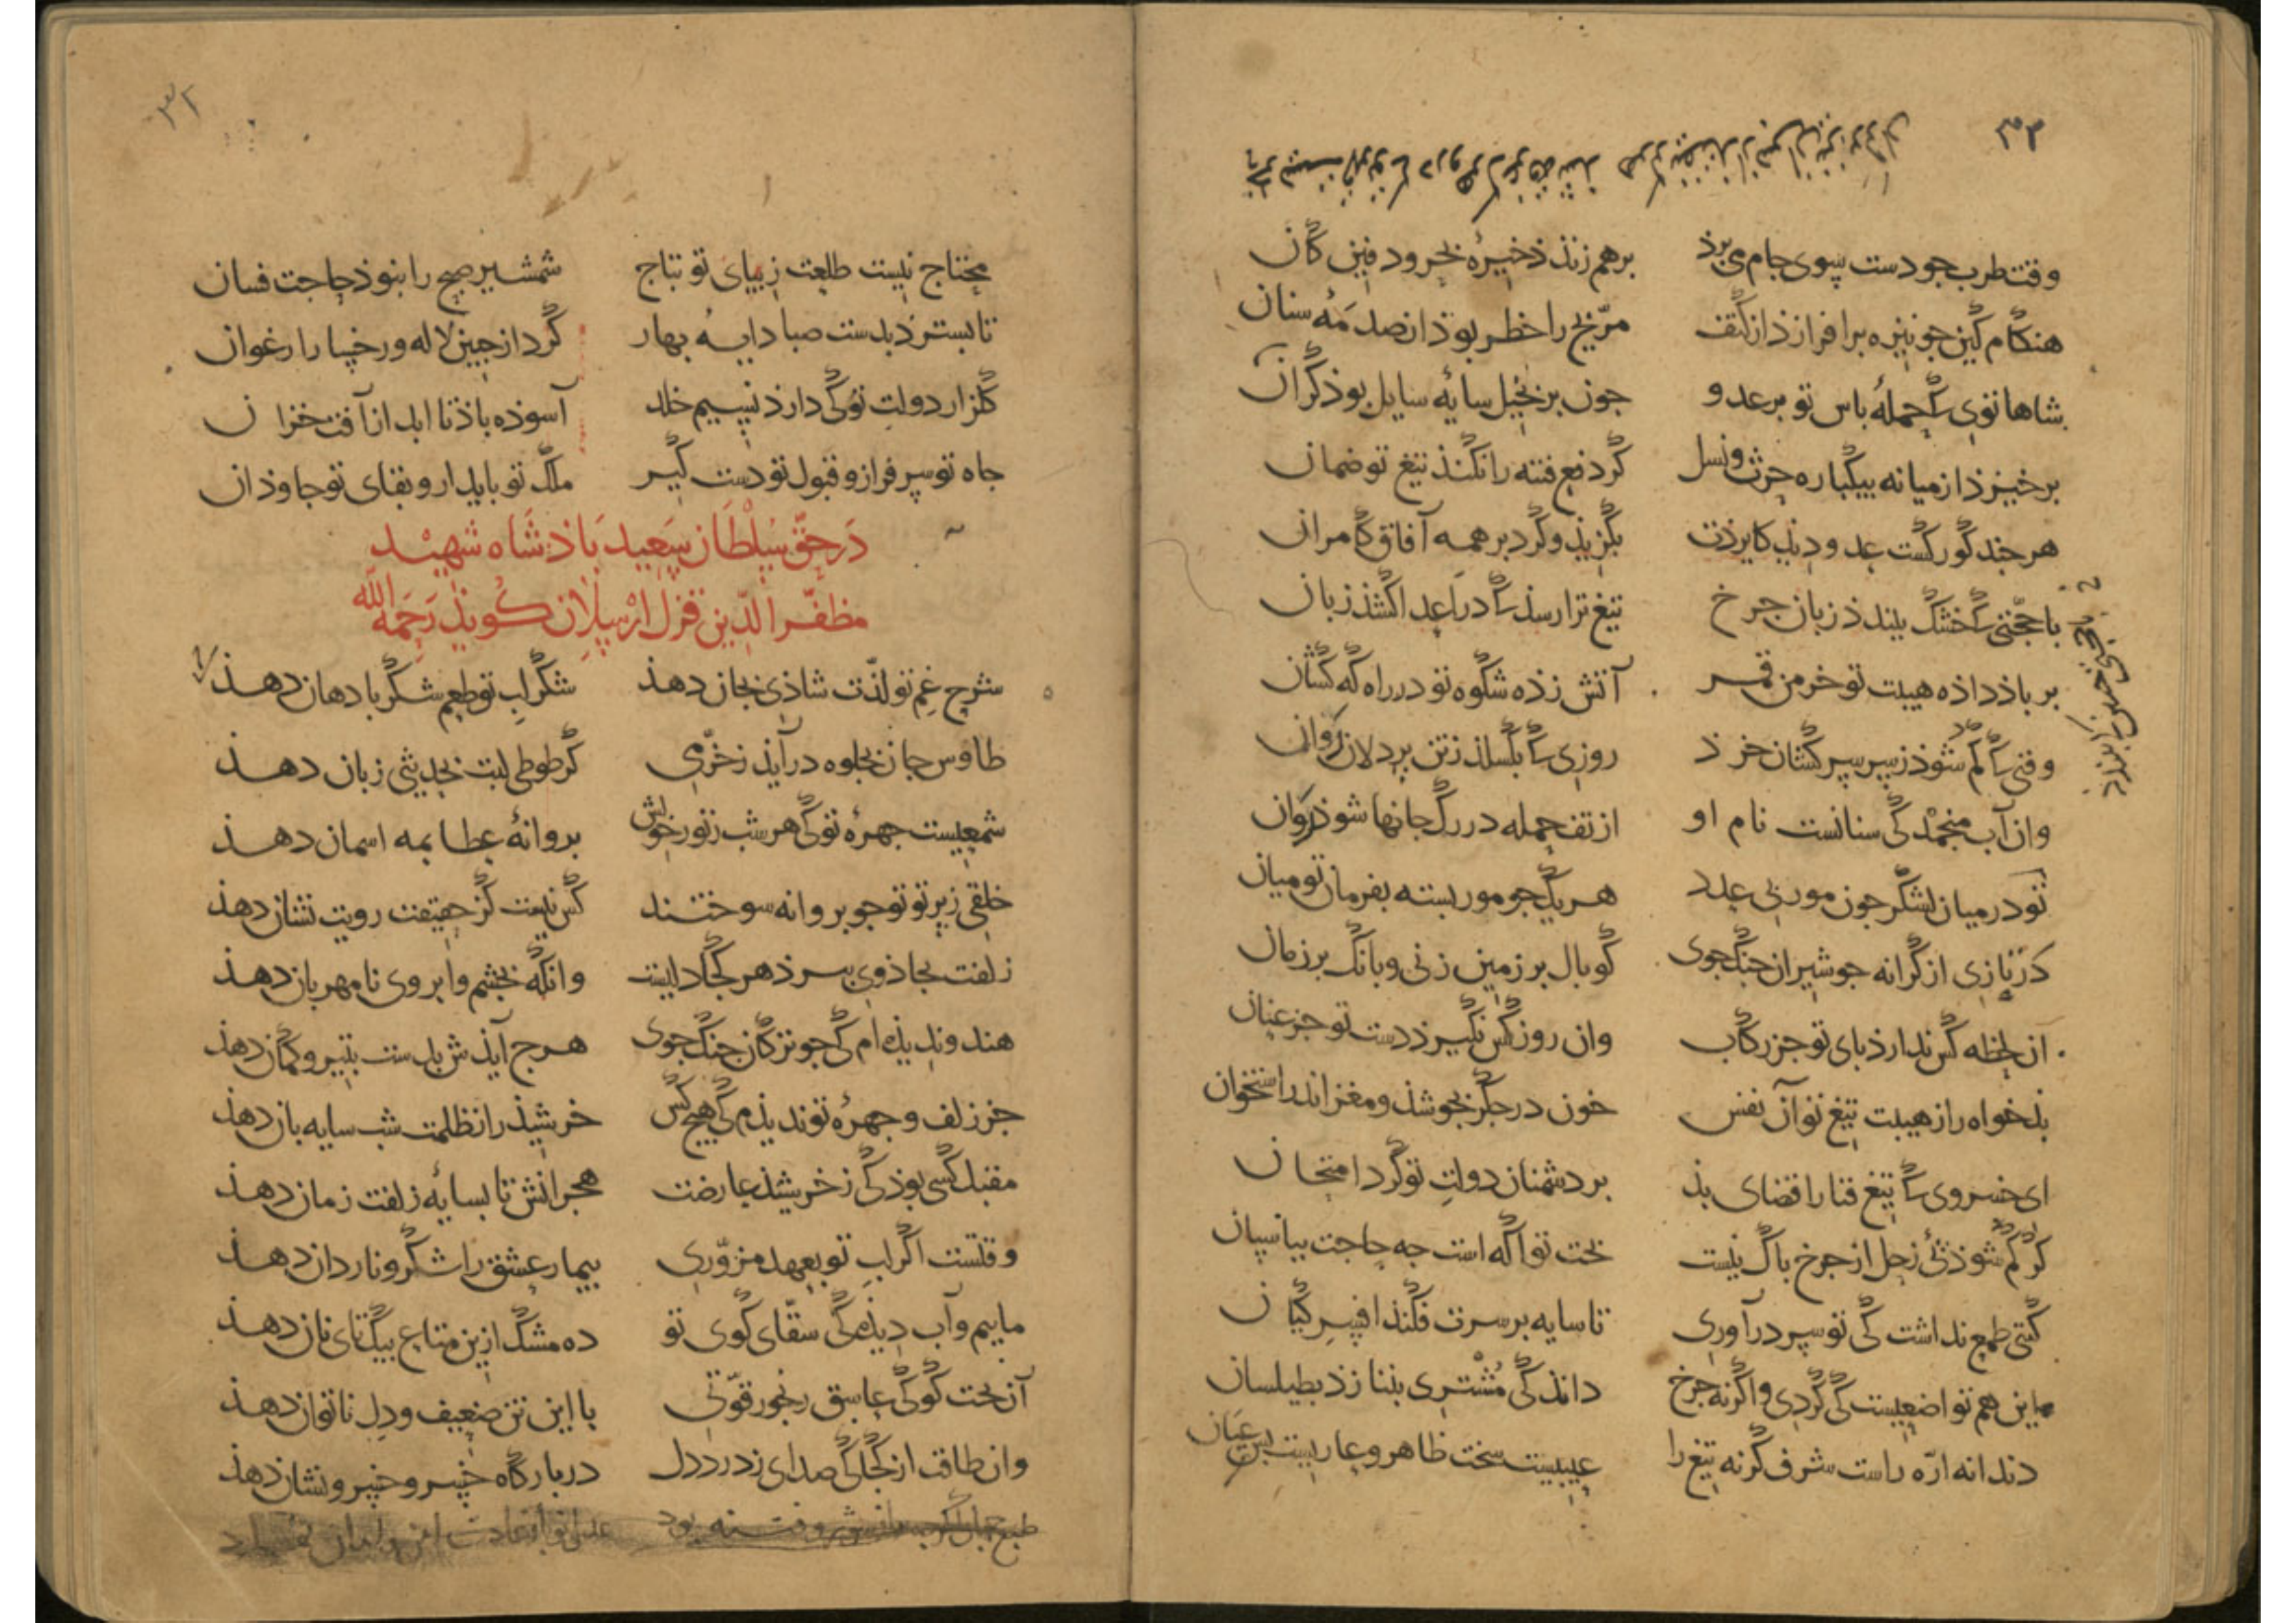 وقت طرب جو دست سوی جام می برذ برهم زنذ ذخیرهٔ بحر و دفین کان
هنکام کین جو نیزه برافرازذ از کتف مرّیخ را خطر بوذ از صدمهٔ سنان
شاها توی که حملهٔ باس تو بر عدو جون بر بخیل سایهٔ سایل بوذ کران
برخیزذ از میانه بیکباره حرث و نسل کر دفع فتنه را نکنذ تیغ تو ضمان
هر جند کور کشت عدو دیذ کایزذت بکزیذ و کرد بر همه آفاق کامران
با حجّتی که خشک بینذ زبان جرخ تیغ ترا رسذ که در اعدا کشذ زبان
بر باذ داذه هیبت تو خرمن قمر آتش زذه شکوه تو در راه کهکشان
وقتی که کم شوذ ز سر سرکشان خرذ روزی که بکسلذ ز تن پردلان روان
وان آب منجمد کی سنانست نام او از تف حمله در رک جانها شوذ روان
تو در میان لشکر جون مور بی عدد هر یک جو مور بسته بفرمان تو میان
در تازی از کرانه جو شیران جنک جوی کوبال بر زمین زنی و بانک بر زمان
آن لحظه کس ندارذ بای تو جز رکاب وان روز کس نکیرذ دست تو جز عنان
بذخواه را ز هیبت تیغ تو آن نفس خون در جکر بجوشذ و مغز اندر استخوان
ای خسروی که تیغ فنا را قضای بذ بر دشمنان دولت تو کرد امتحان
کر کم شوذ زحل از جرخ باک نیست بخت تو اکه است جه حاجت بپاسبان
کیتی طمع نداشت کی تو سر درآوری تا سایه بر سرت فکنذ افسر کیان
این هم تواضعیست کی کردی و اکرنه جرخ دانذ کی مشتری بننازذ بطیلسان
دندانه ارّه راست شرف کرنه تیغ را عیبیست سخت ظاهر و عاریست بس عیان
۳۲
محتاج نیست طلعت زیبای تو بتاج شمشیر صبح را نبوذ حاجت فسان
تا بسترذ بدست صبا دایهٔ بهار کرد از جبین لاله و رخسار ارغوان
کلزار دولت تو کی دارذ نسیم خلد آسوده باذ تا ابد از آفت خزان
جاه تو سرفراز و قبول تو دست کیر ملک تو بایدار و بقای تو جاوذان
در حقّ سلطان سعید باذشاه شهید
مظفّر الدین قزل ارسلان کویذ رحمه الله
شرح غم تو لذّت شاذی بجان دهذ شکر لب تو طعم شکر با دهان دهذ
طاوس جان بجلوه درآیذ ز خرّمی کر طوطی لبت بحدیثی زبان دهذ
شمعیست جهرهٔ تو کی هر شب ز نور خویش بروانهٔ عطا بمه اسمان دهذ
خلقی ز پرتو تو جو بروانه سوختند کس نیست کز حقیقت رویت نشان دهذ
زلفت بجاذوی ببرذ هر کجا دلیست وانکه بجشم و ابروی نامهربان دهذ
هندو ندیذه‌ام کی جو ترکان جنک جوی هرج آیذش بدست بتیر و کمان دهذ
جز زلف و جهرهٔ تو ندیذم کی هیج کس خرشیذ را ز ظلمت شب سایه‌بان دهذ
مقبل کسی بوذ کی ز خرشیذ عارضت هجرانش تا بسایهٔ زلفت زمان دهذ
وقتست اکر لب تو بعهد مزوّری بیمار عشق را شکر و ناردان دهذ
ماییم و آب دیذه کی سقّای کوی تو ده مشک ازین متاع بیکتای نان دهذ
آن بخت کو کی عاشق رنجور قوّتی با این تن ضعیف و دل ناتوان دهذ
وان طاقت از کجا کی صدای ز درد دل در بارکاه خسرو خسرونشان دهذ